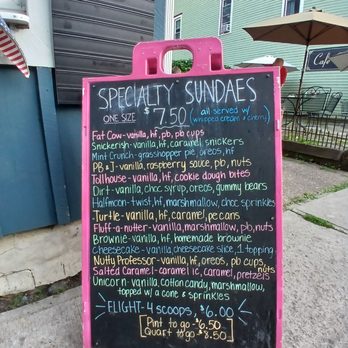 SPECIALTY SUNDAES
ONE SIZE $7.50 (all served w/ whipped cream & cherry)
Fat Cow-vanilla, hf, pb, pb cups
Snickerish-vanilla, hf, caramel, snickers
Mint Crunch-grasshopper pie, oreos, hf
PB&J-vanilla, raspberry sauce, pb, nuts
Tollhouse-vanilla, hf, cookie dough bites
Dirt-vanilla, choc syrup, oreos, gummy bears
Halfmoon-twist, hf, marshmallow, choc sprinkles
Turtle-vanilla, hf, caramel, pecans
Fluff-a-nutter-vanilla, marshmallow, pb, nuts
Brownie-vanilla, hf, homemade brownie
Cheesecake-vanilla, cheesecake slice, 1 topping
Nutty Professor-vanilla, hf, oreos, pb cups, nuts
Salted Caramel-caramel ic, caramel, pretzels
Unicorn-vanilla, cotton candy, marshmallow,
topped w/ a cone & sprinkles
FLIGHT-4 SCOOPS, $6.00
Pint to go-$6.50
Quart to go-$8.50
Cafe